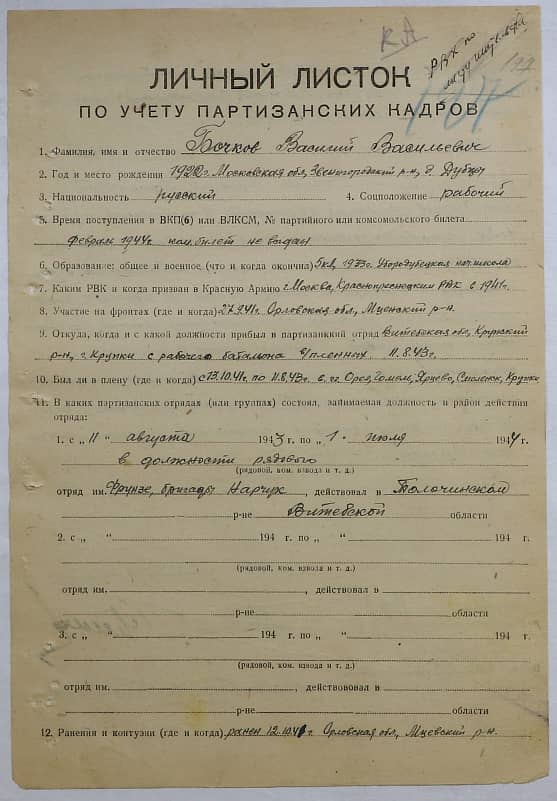 КА
РВК по
197
ЛИЧНЫЙ ЛИСТОК
ПО УЧЕТУ ПАРТИЗАНСКИХ КАДРОВ
1. Фамилия, имя и отчество Бочков Василий Васильевич
2. Год и место рождения 1922 г. Московская обл, Звенигородский р-н, д. Дубцы
3. Национальность русский 4. Соцположение рабочий
5. Время поступления в ВКП(б) или ВЛКСМ, № партийного или комсомольского билета
февраль 1944г. ком. билет не выдан
6. Образование: общее и военное (что и когда окончил) 5кл, 1933г. нач. школа
7. Каким РВК и когда призван в Красную Армию г. Москва, Краснопресненским РВК в 1941г.
8. Участие на фронтах (где и когда) 27.9.41г. Орловская обл, Мценский р-н.
9. Откуда, когда и с какой должности прибыл в партизанский отряд Витебская обл, Крупский
р-н, г. Крупки с рабочего батальона в/пленных 11.8.43г.
10. Был ли в плену (где и когда) с 13.10.41г. по 11.8.43г. в гг. Орел, Гомель, Ярцево, Смоленск, Крупки
11. В каких партизанских отрядах (или группах) состоял, занимаемая должность и район действия
отряда:
1. с „ 11 " августа 1943 г. по „ 1 " июля 1944 г.
в должности рядового
(рядовой, ком. взвода и т. д.)
отряд им. Фрунзе, бригады Нарчук, действовал в Толочинском
р-не Витебской области
2. с „ " 194 г. по „ " 194 г.
(рядовой, ком. взвода и т. д.)
отряд им. , действовал в
р-не области
3. с „ " 194 г. по „ " 194 г.
(рядовой, ком. взвода и т. д.)
отряд им. , действововал в
р-не области
12. Ранения и контузии (где и когда) ранен 12.10.41г. Орловская обл, Мцевский р-н.